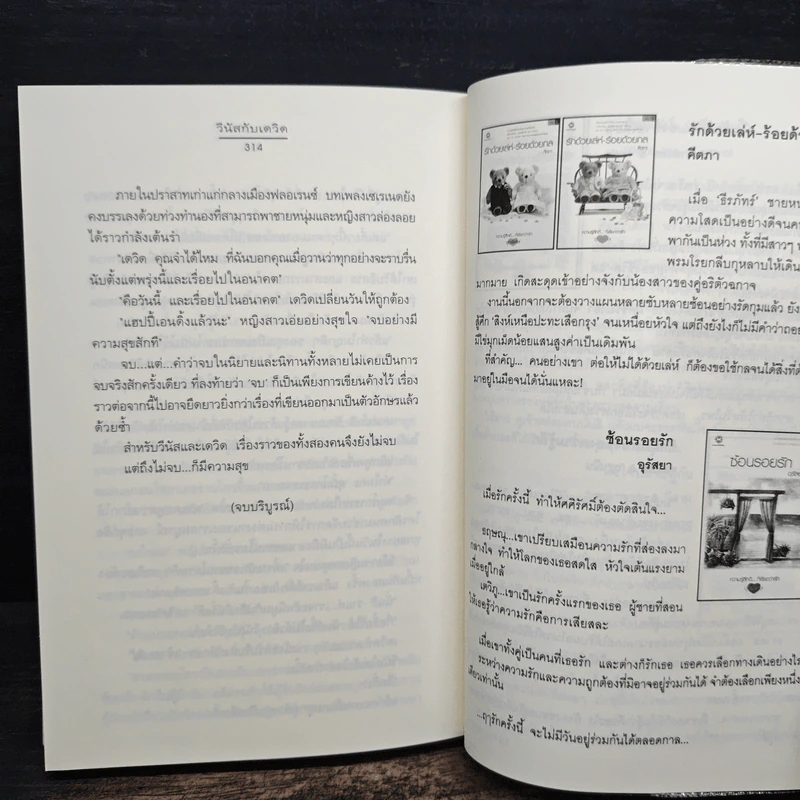 วีนัสกับเดวิด
314
ภายในปราสาทเก่าแก่กลางเมืองฟลอเรนซ์ บทเพลงเซเรเนดยัง
คงบรรเลงด้วยท่วงทำนองที่สามารถพาชายหนุ่มและหญิงสาวล่องลอย
ได้ราวกำลังเต้นรำ
"เดวิด คุณจำได้ไหม ที่ฉันบอกคุณเมื่อวานว่าทุกอย่างจะราบรื่น
นับตั้งแต่พรุ่งนี้และเรื่อยไปในอนาคต"
"คือวันนี้ และเรื่อยไปในอนาคต" เดวิดเปลี่ยนวันให้ถูกต้อง
"แฮปปี้เอนดิ้งแล้วนะ" หญิงสาวเอ่ยอย่างสุขใจ "จบอย่างมี
ความสุขสักที"
จบ...แต่...คำว่าจบในนิยายและนิทานทั้งหลายไม่เคยเป็นการ
จบจริงสักครั้งเดียว ที่ลงท้ายว่า 'จบ' ก็เป็นเพียงการเขียนค้างไว้ เรื่อง
ราวต่อจากนี้ไปอาจยืดยาวยิ่งกว่าเรื่องที่เขียนออกมาเป็นตัวอักษรแล้ว
ด้วยซ้ำ
สำหรับวีนัสและเดวิด เรื่องราวของทั้งสองคนจึงยังไม่จบ
แต่ถึงไม่จบ...ก็มีความสุข
(จบบริบูรณ์)
รักด้วยเล่ห์-ร้อยด้วยกล
รักด้วยเล่ห์-ร้อยด้วยกล
รักด้วยเล่ห์-ร้อยด้ว
คีตภา
เมื่อ 'ธีรภัทร์' ชายหน
ความโสดเป็นอย่างดีจนค
พากันเป็นห่วง ทั้งที่มีสาวๆ
พรมโรยกลีบกุหลาบให้เดิน
มากมาย เกิดสะดุดเข้าอย่างจังกับน้องสาวของคู่อริตัวฉกาจ
งานนี้นอกจากจะต้องวางแผนหลายซับหลายซ้อนอย่างรัดกุมแล้ว ยัง
สู้ศึก 'สิงห์เหนือปะทะเสือกรุง' จนเหนื่อยหัวใจ แต่ถึงยังไงก็ไม่มีคำว่าถอย
มีไข่มุกเม็ดน้อยแสนสูงค่าเป็นเดิมพัน
ที่สำคัญ... คนอย่างเขา ต่อให้ไม่ได้ด้วยเล่ห์ ก็ต้องขอใช้กลจนได้สิ่งที่ต้
มาอยู่ในมือจนได้นั่นแหละ!
ซ้อนรอยรัก
อุรัสยา
ซ้อนรอยรัก
เมื่อรักครั้งนี้ ทำให้ศศิรัศมิ์ต้องตัดสินใจ...
ธฤษณุ...เขาเปรียบเสมือนความรักที่ส่องลงมา
กลางใจ ทำให้โลกของเธอสดใส หัวใจเต้นแรงยาม
เมื่ออยู่ใกล้
เตวิภู...เขาเป็นรักครั้งแรกของเธอ ผู้ชายที่สอน
ให้เธอรู้ว่าความรักคือการเสียสละ
เมื่อเขาทั้งคู่เป็นคนที่เธอรัก และต่างก็รักเธอ เธอควรเลือกทางเดินอย่างไร
ระหว่างความรักและความถูกต้องที่มิอาจอยู่ร่วมกันได้ จำต้องเลือกเพียงหนึ่ง
เดียวเท่านั้น
...ฤๅรักครั้งนี้ จะไม่มีวันอยู่ร่วมกันได้ตลอดกาล...